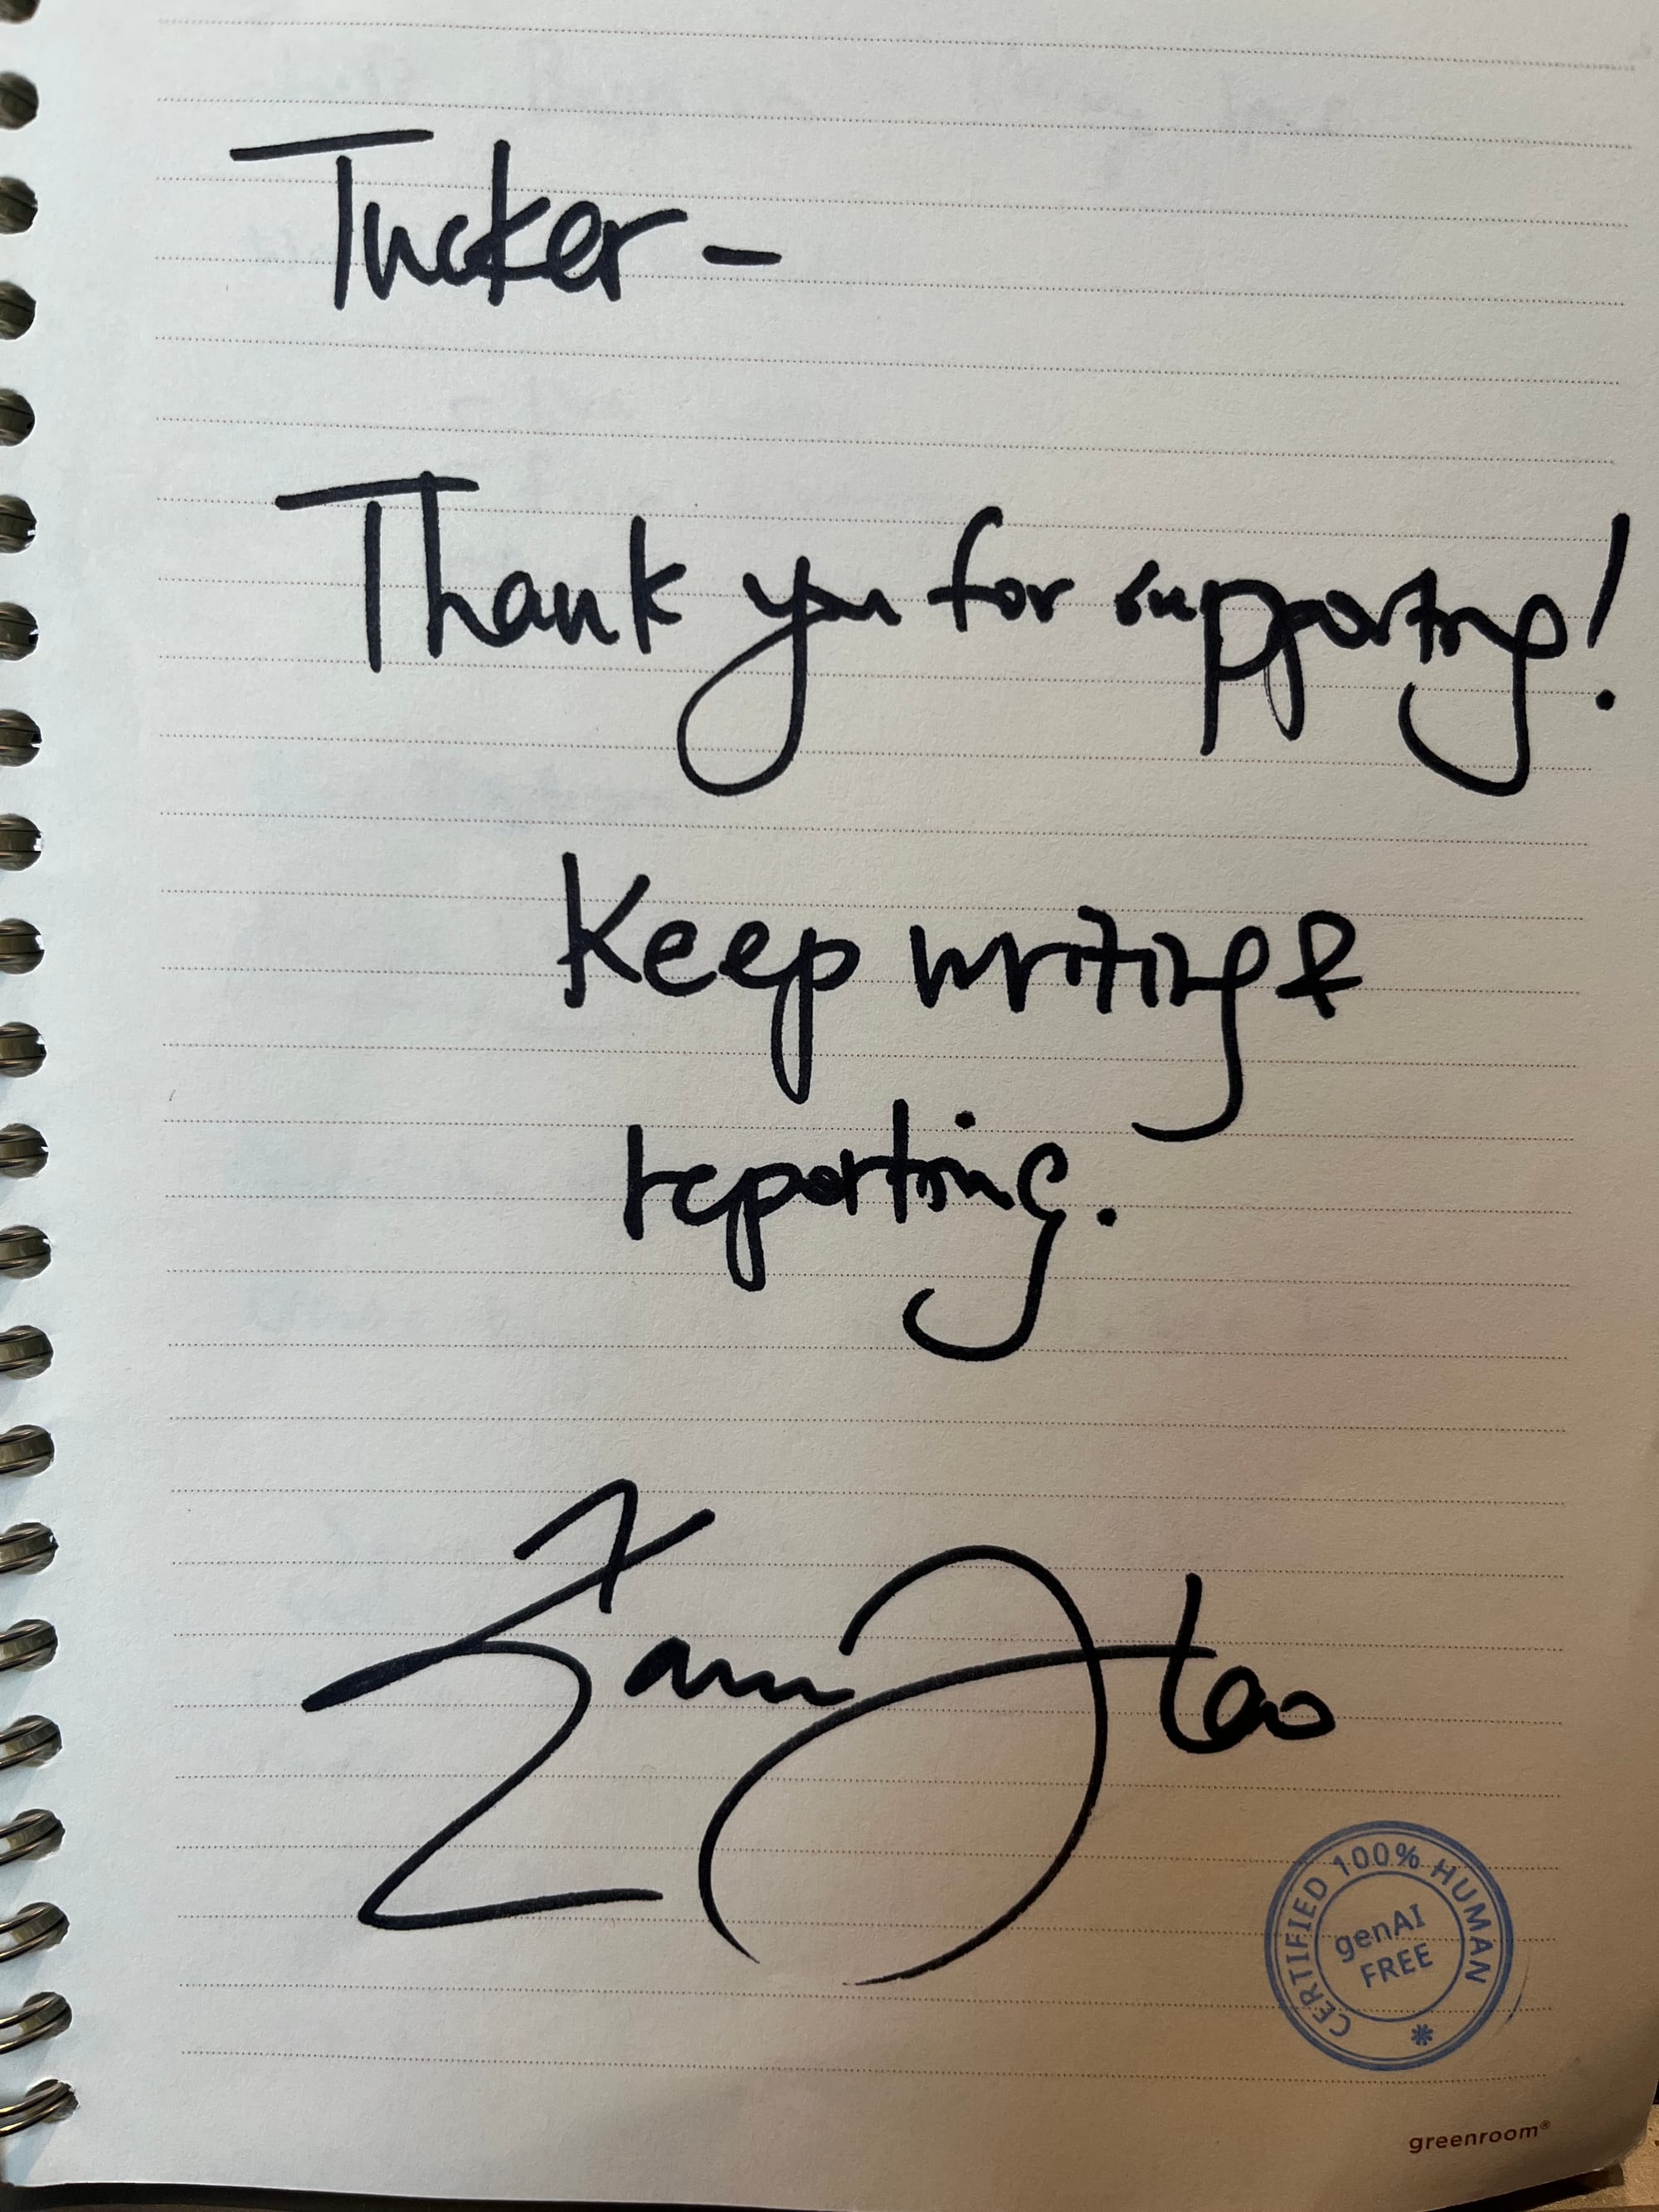 Tucker -
Thank you for supporting!
Keep writing &
reporting.
CERTIFIED 100% HUMAN
genAI
FREE
greenroom®